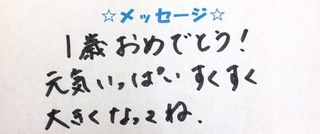 ☆メッセージ☆
1歳おめでとう!
元気いっぱいすくすく
大きくなってね.